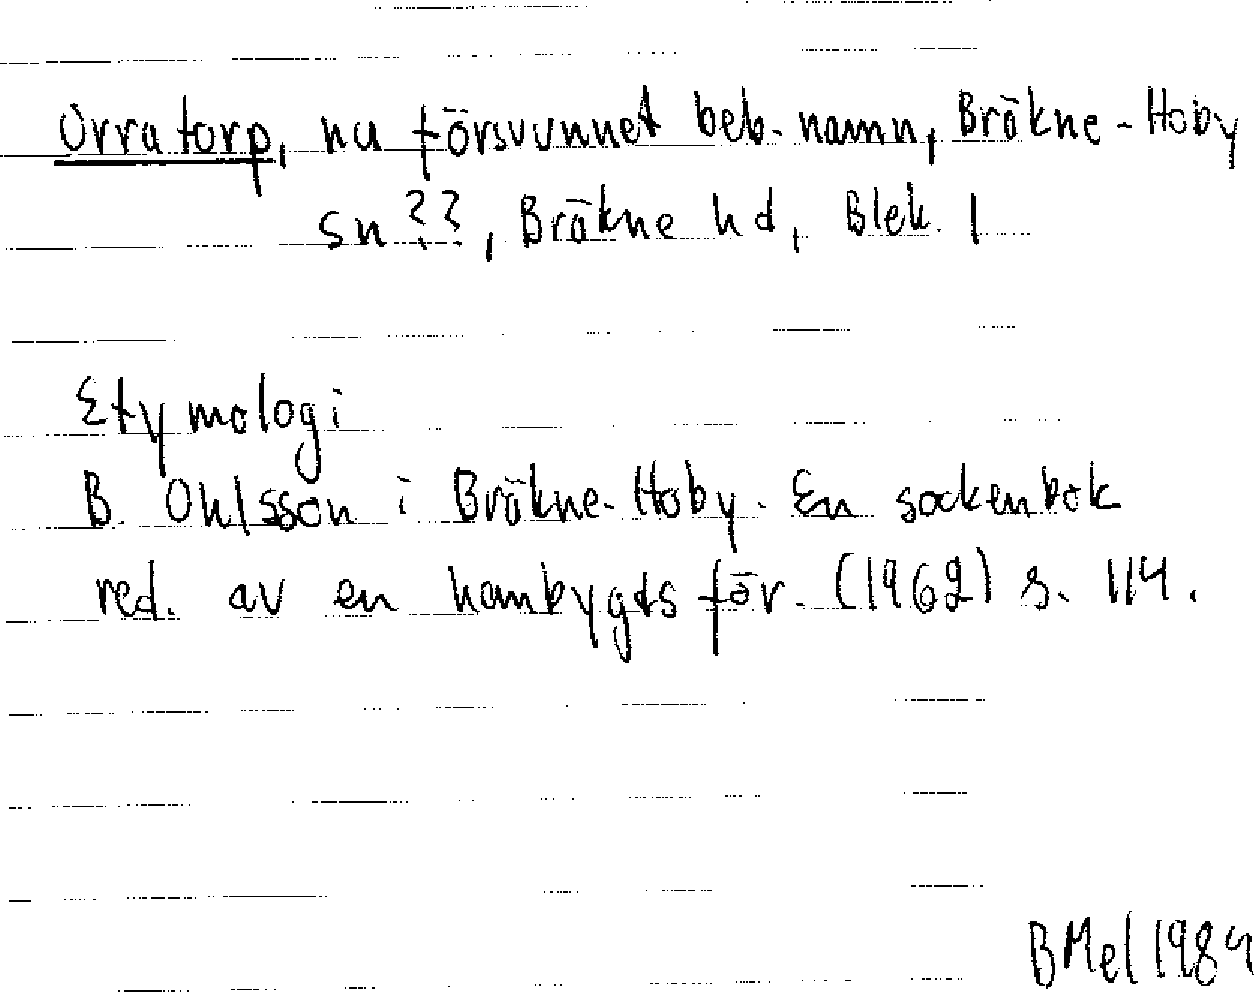 Orratorp, nu försvunnet beb.namn, Bräkne-Hoby
sn??, Bräkne hd, Blek. l
Etymologi
B. Ohlsson i Bräkne-Hoby. En sockenbok
red. av en hembygdsför. (1962) s. 114.
BMel 1984